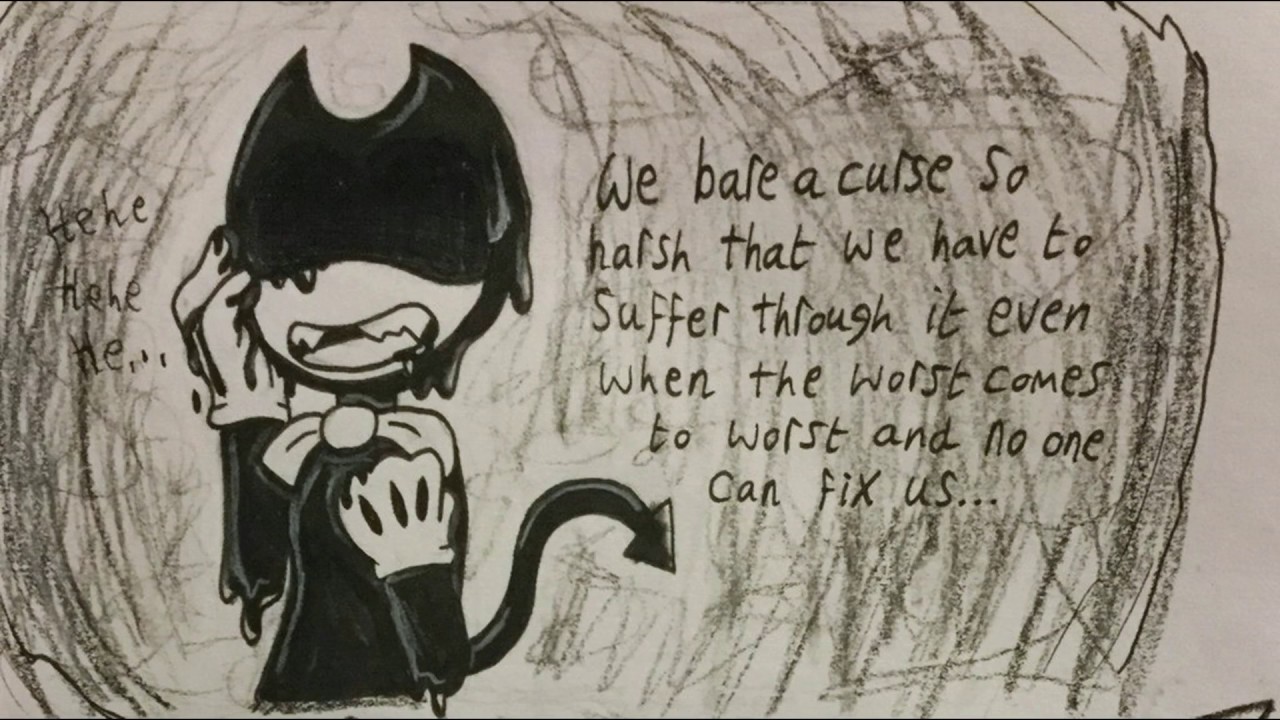 Hehe
Hehe
He...
We bare a curse so
harsh that we have to
suffer through it even
when the worst comes
to worst and no one
can fix us...